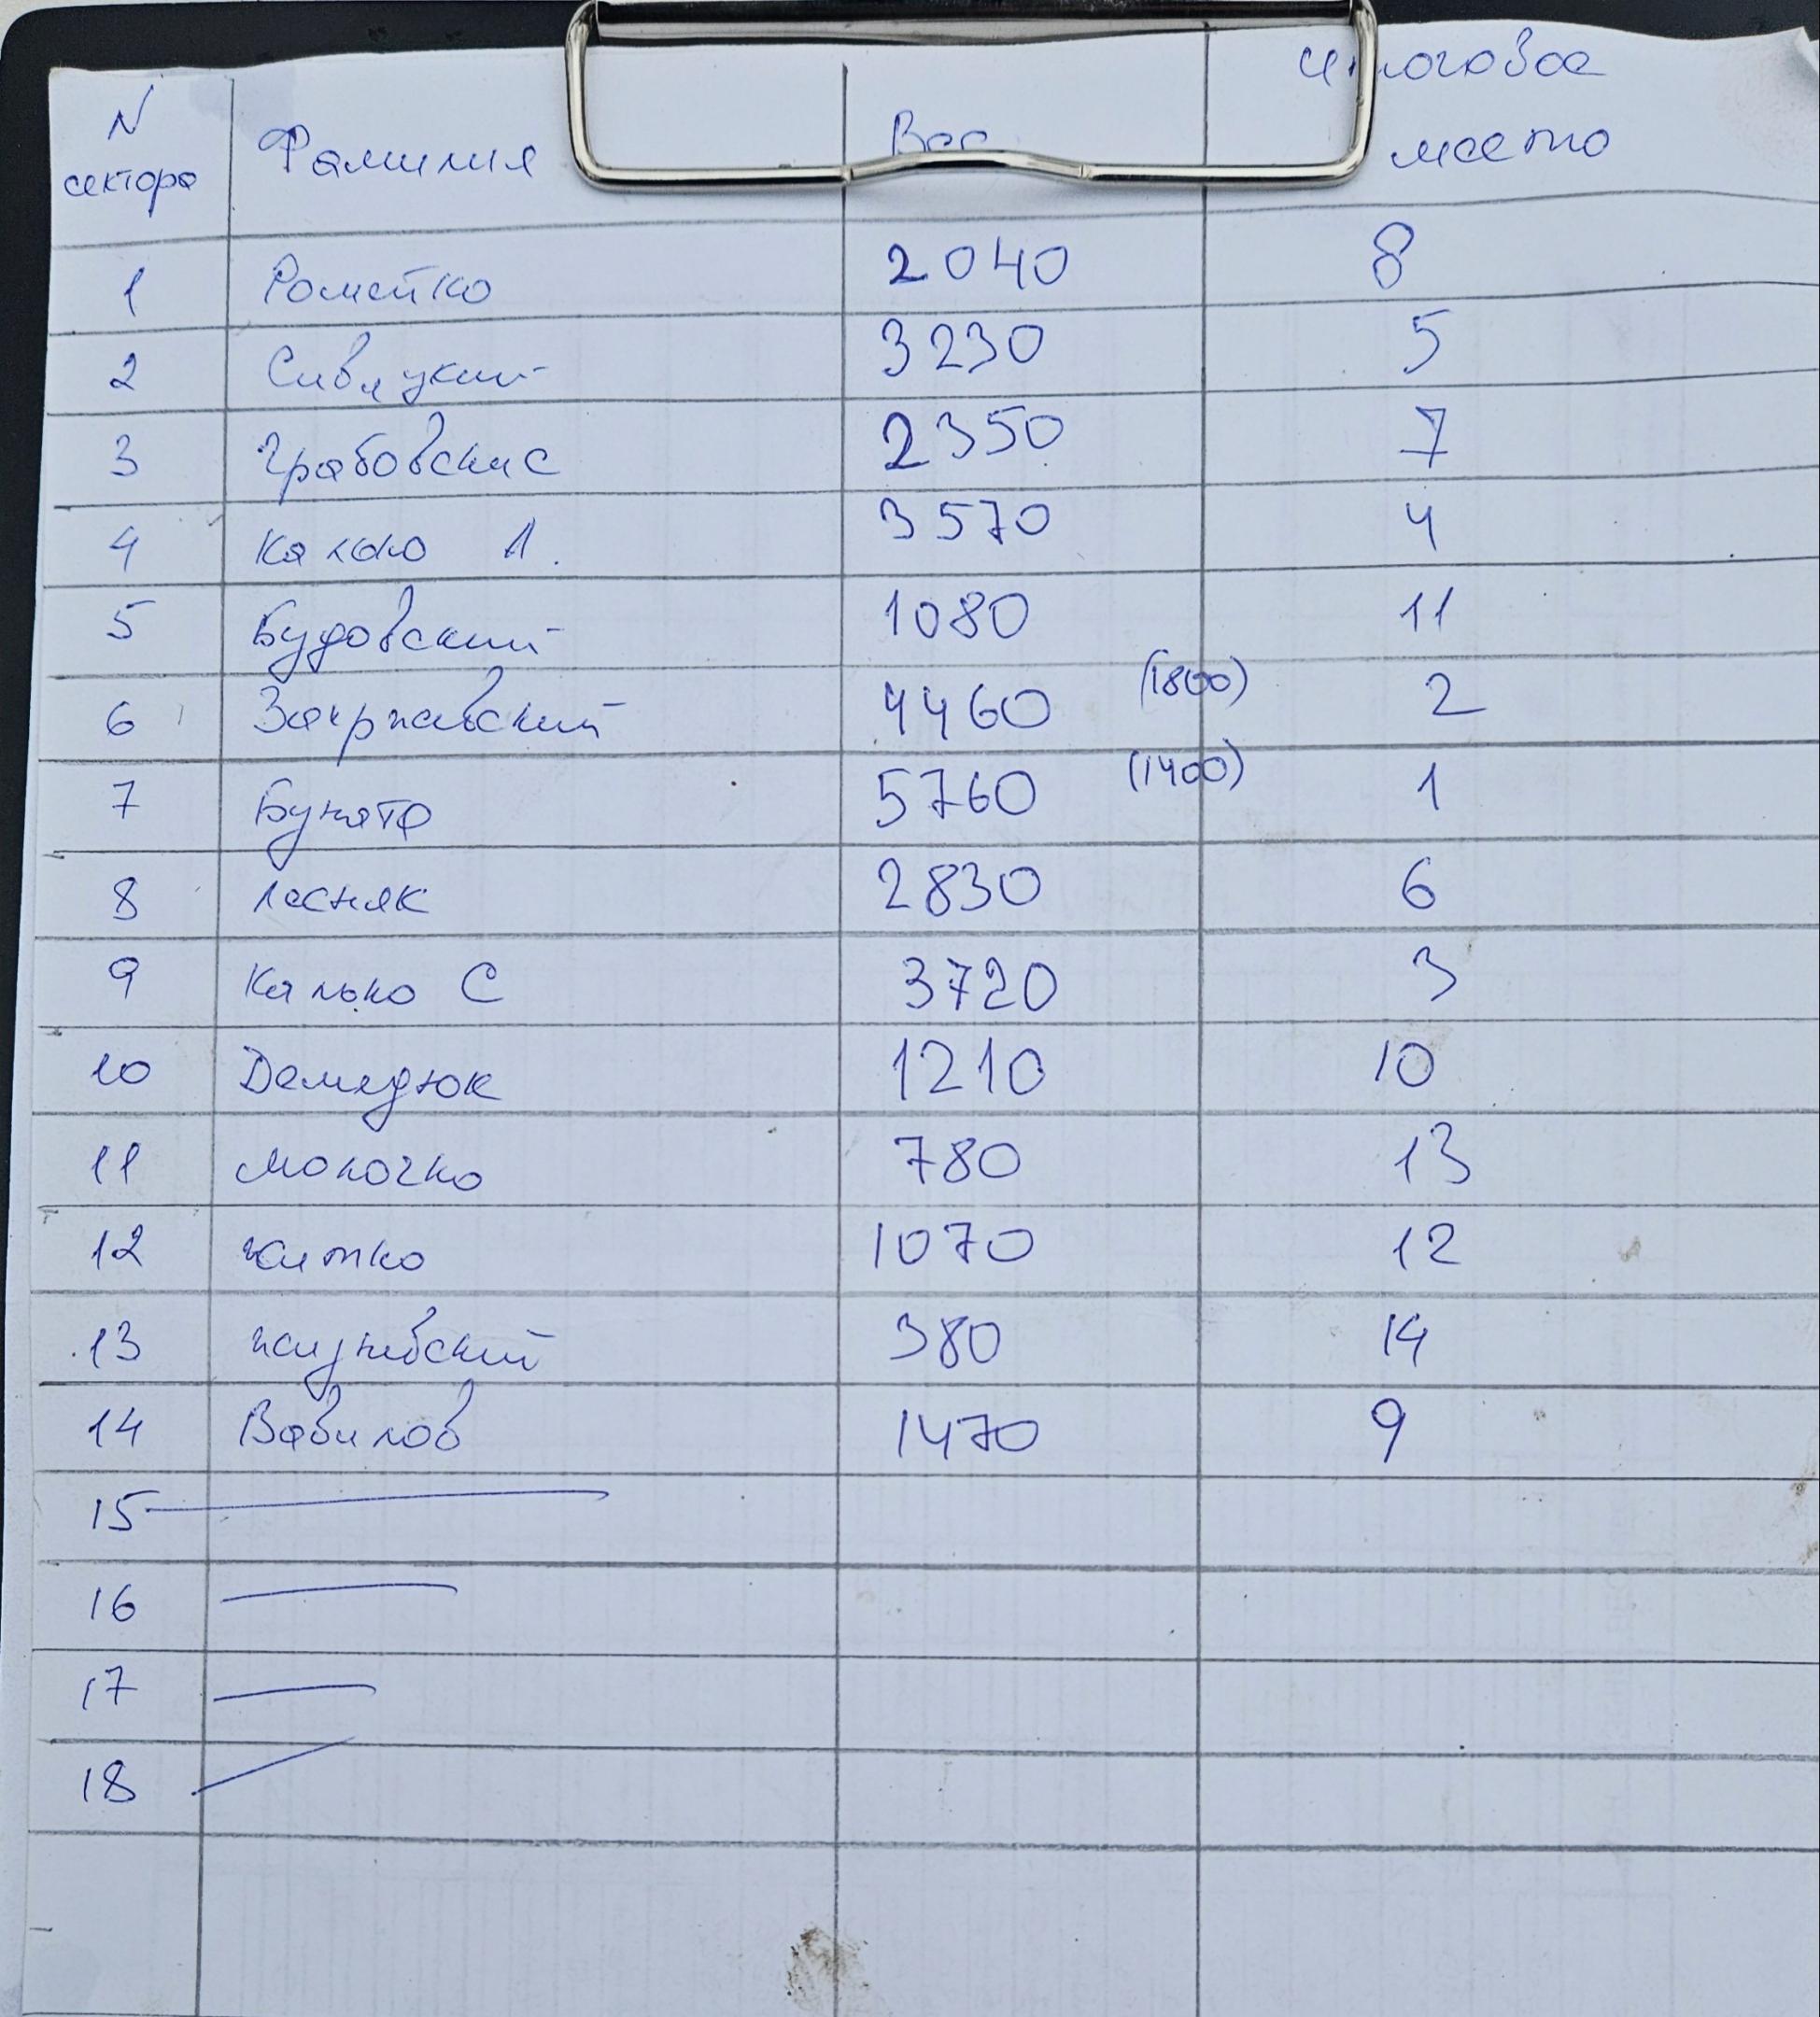 N сектора Фамилия Вес Итоговое место
1 Ромейко 2040 8
2 Сивлукий 3230 5
3 Грабовские 2350 7
4 Калько Л. 3570 4
5 Будовский 1080 11
6 4460 (1800) 2
7 Бунята 5760 (1400) 1
8 Лесняк 2830 6
9 Калько С 3720 3
10 Демидюк 1210 10
11 Молочко 780 13
12 1070 12
13 380 14
14 Вавилов 1470 9
15
16
17
18